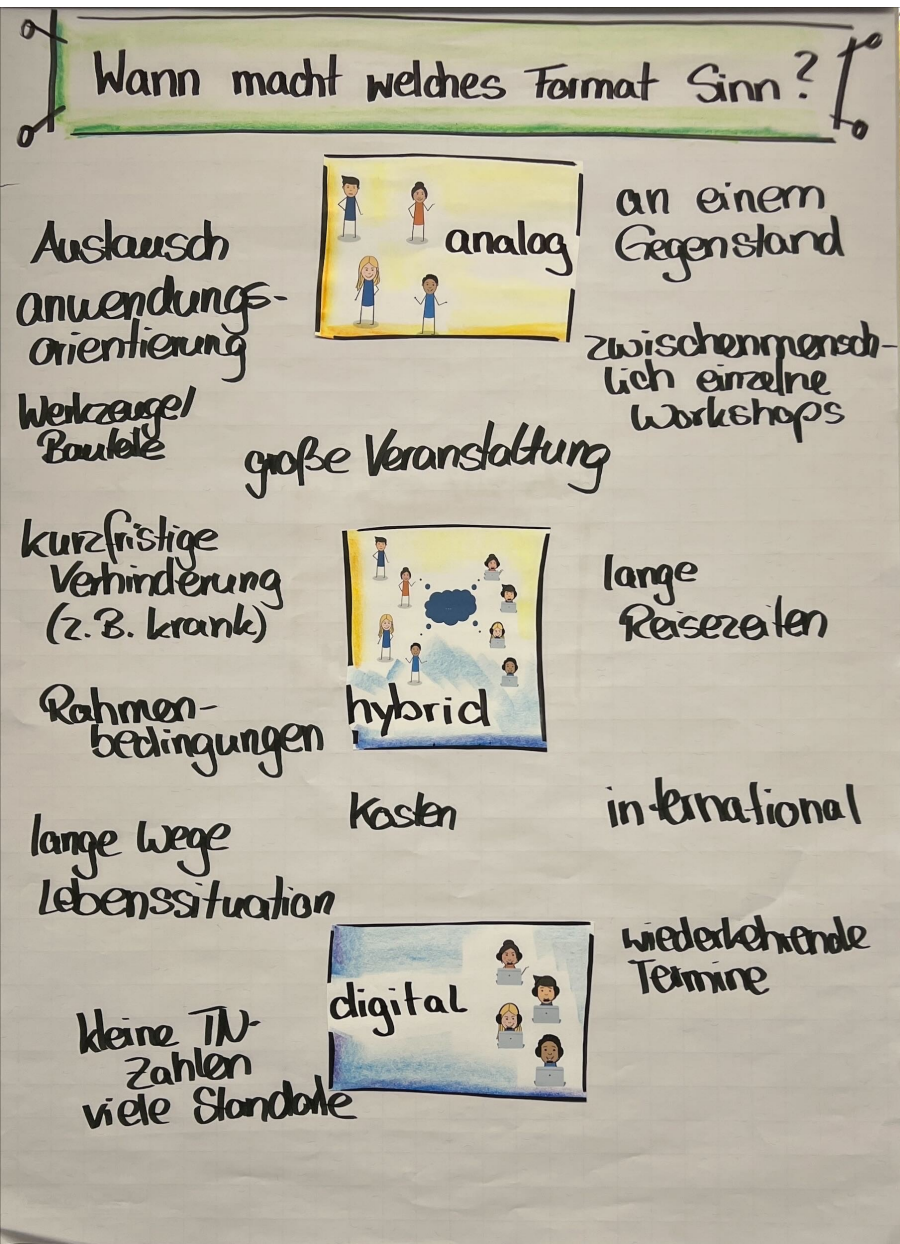 Wann macht welches Format Sinn?
analog
Austausch
anwendungs-
orientierung
Werkzeuge/
Bauteile
an einem
Gegenstand
zwischenmensch-
lich einzelne
Workshops
große Veranstaltung
kurzfristige
Verhinderung
(z.B. krank)
Rahmen-
bedingungen
hybrid
lange
Reisezeiten
Kosten
international
lange Wege
Lebenssituation
digital
wiederkehrende
Termine
kleine TN-
Zahlen
viele Standorte